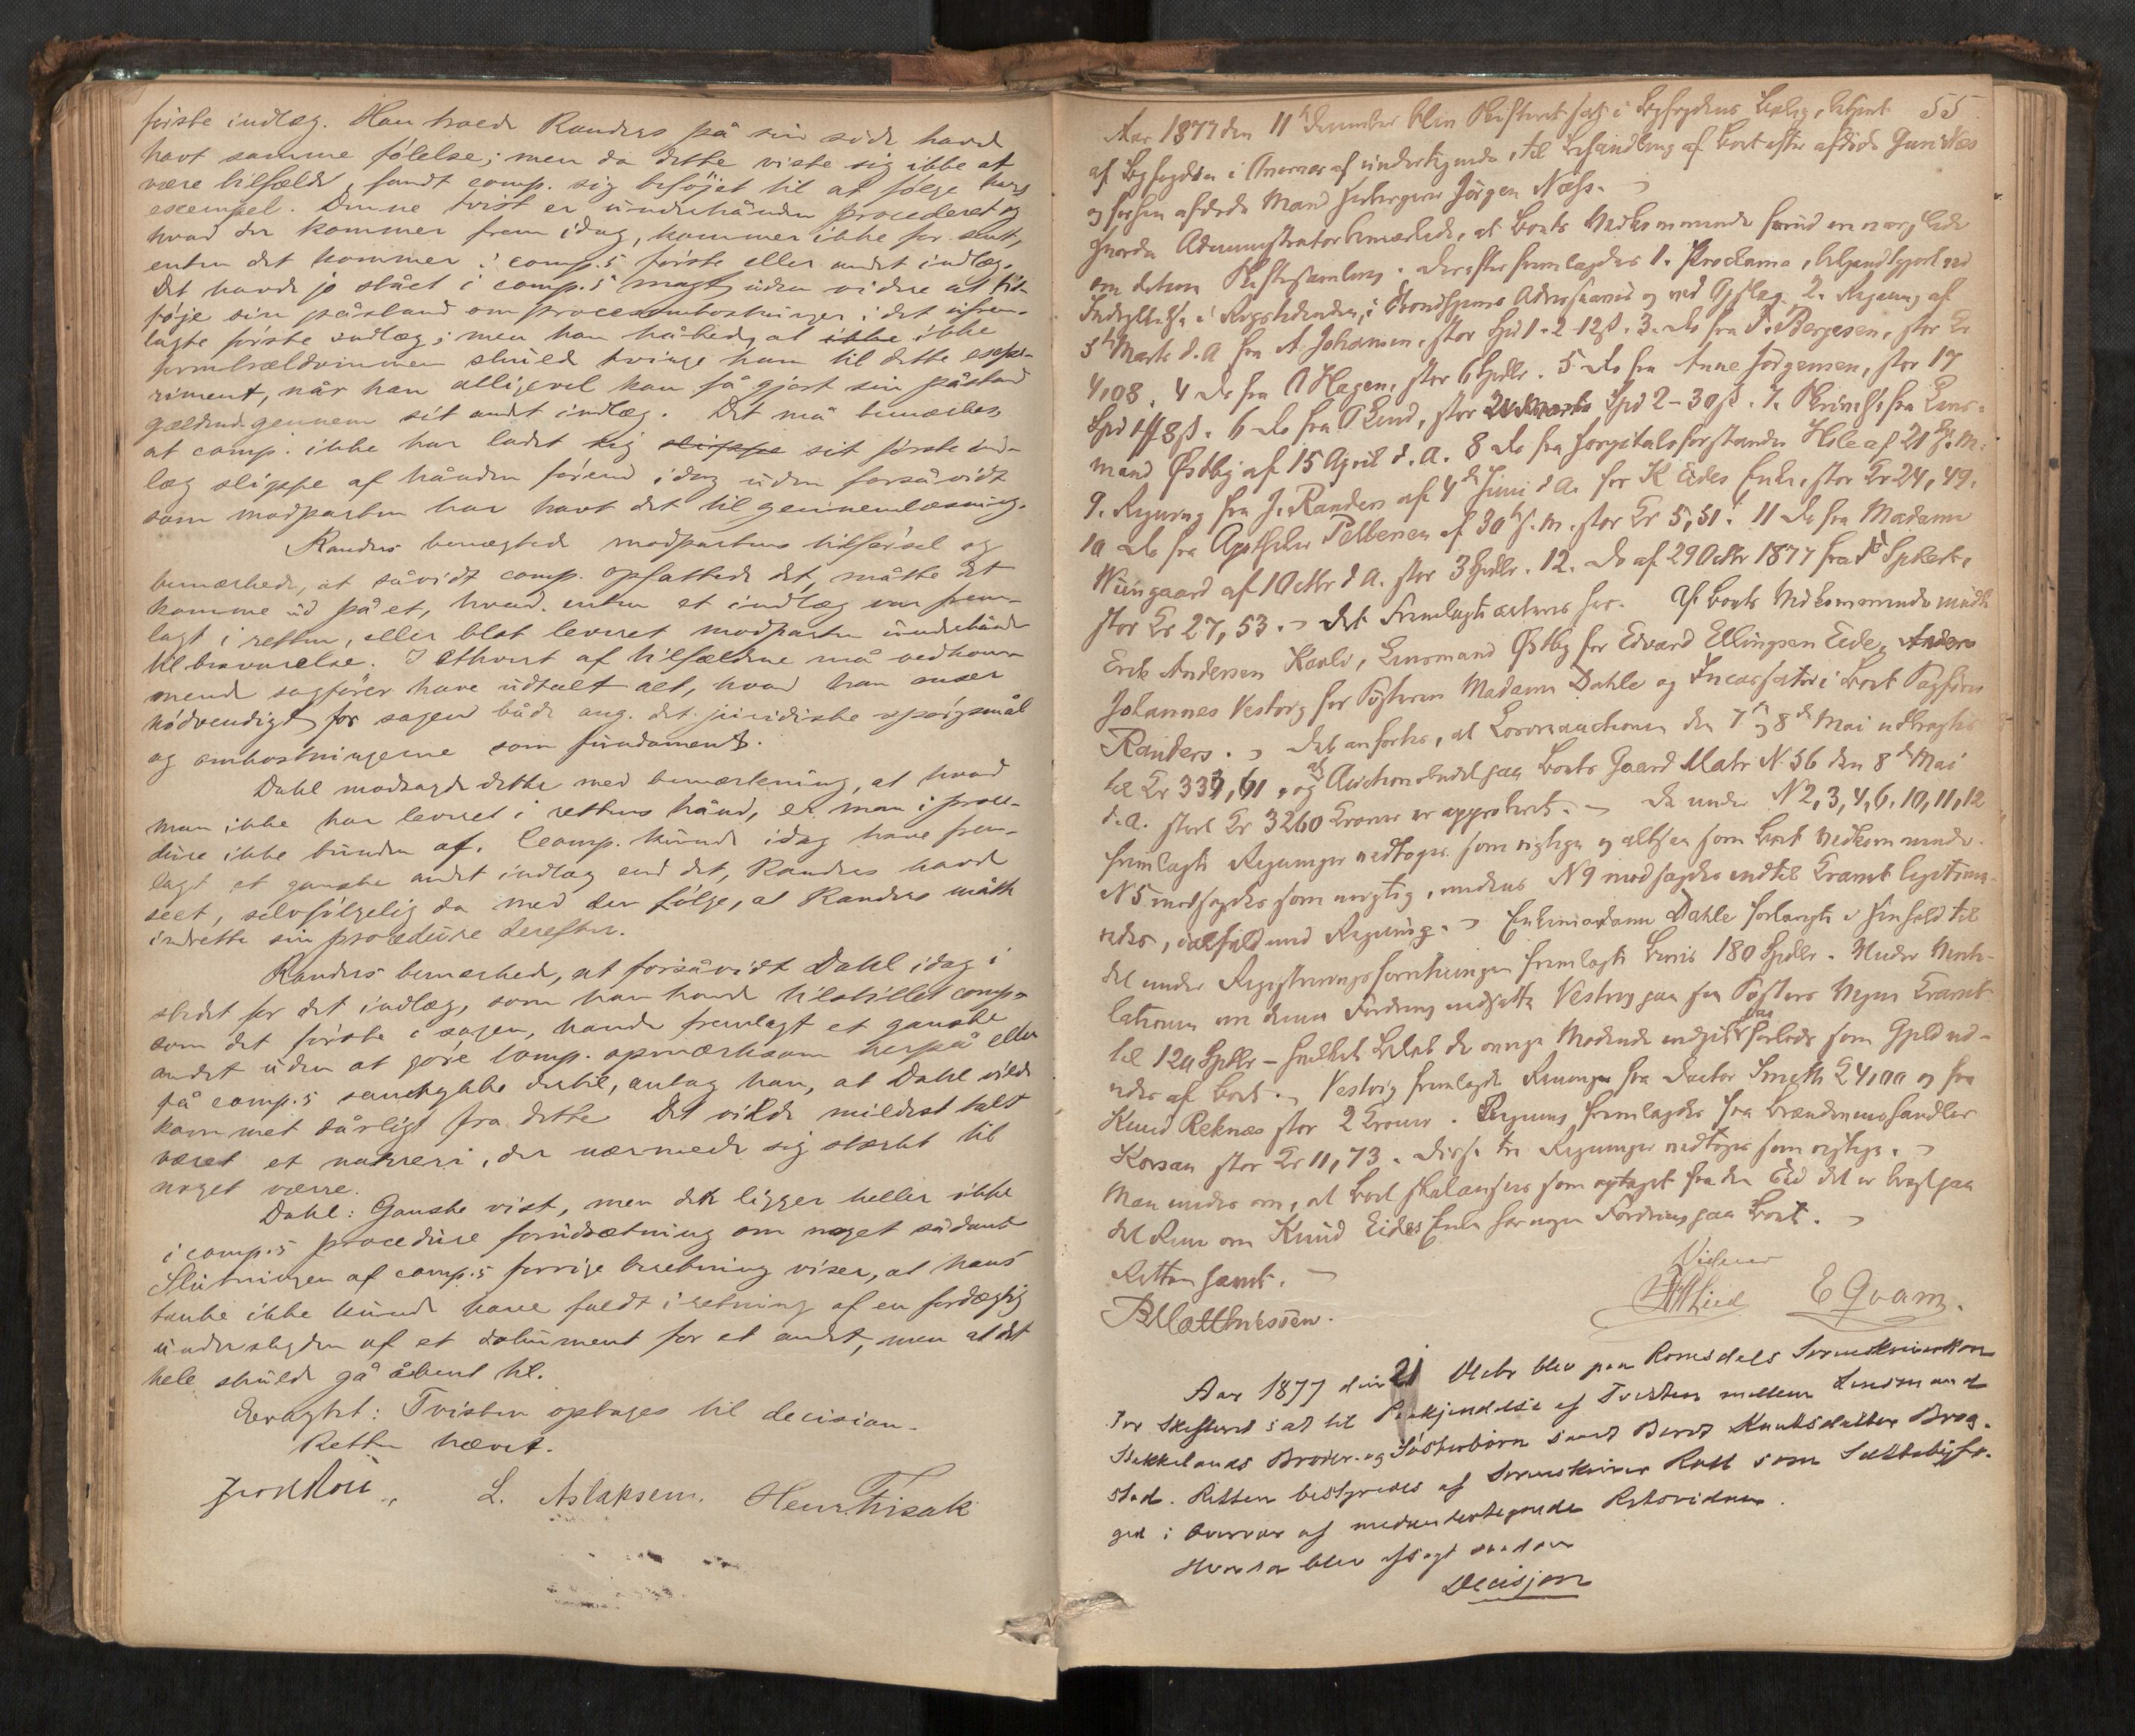 første indlæg. Han troede Randers på sin side havde
havt samme følelse; men da dette viste sig ikke at
være tilfælde, fandt comp. sig beføjet til at følge hans
exempel. Denne tvist er underhånden procederet og
hvad der kommer frem idag, kommer ikke for sent,
enten det kommer i comp.s første eller andet indlæg.
Det havde jo stået i comp.s magt uden videre at til-
føje sin påstand om procesomkostninger i det ufrem-
lagte første indlæg; men han håbede at ikke
formtrældommen skulde tvinge ham til dette expe-
riment, når han alligevel kan få gjort sin påstand
gældende gennem sit andet indlæg. Det må bemærkes
at comp. ikke har ladet sig slippe sit første ind-
læg slippe af hånden førend idag uden forsåvidt
som modparten har havt det til gennemlæsning.
Randers benægtede modpartens tilførsel og
bemærkede, at såvidt comp. opfattede det, måtte det
komme ud på et, hvad enten et indlæg var frem-
lagt i retten, eller blot leveret modparten underhånden
til besvarelse. I ethvert af tilfældene må vedkom-
mende sagfører have udtalt alt, hvad han anser
nødvendigt for sagen både ang. det juridiske spørgsmål
og omkostningerne som fundament.
Dahl modsagde dette med bemærkning, at hvad
man ikke har leveret i rettens hånd, er man i proce-
dure ikke bunden af. Comp. kunde idag have frem-
lagt et ganske andet indlæg end det, Randers havde
seet, selvfølgelig da med den følge, at Randers måtte
indrette sin procedure derefter.
Randers bemærkede, at forsåvidt Dahl idag i
stedet for det indlæg, som han havde tilstillet comp.
som det første i sagen, havde fremlagt et ganske
andet uden at gøre comp. opmærksom herpå eller
få comp.s samtykke dertil, antog han, at Dahl vilde
kommet dårligt fra dette. Det vilde mildest talt
været et narreri, der nærmede sig stærkt til
noget værre.
Dahl: Ganske vist, men det ligger heller ikke
i comp.s procedure forudsætning om noget sådant
Slutningen af comp.s forrige beretning viser, at hans
tanke ikke kunde have faldt i retning af en fordægtig
understigden af et dokument for et andet, men at det
hele skulde gå åbent til.
Eragtet: Tvisten optages til decision.
Retten hævet.
L. Aslaksen. Henr. Frisak
55
Aar 1877 den 11te December blev Skifteret sat i Byfogdens Bolig, betjent
af Byfogden i Overvær af undertegnede, til Behandling af Boet efter afdøde Guri Næs
og forhen afdøde Mand Huseier Jørgen Næss.
Hvorda Administrator bemærkede, at Boets Vedkommende forud ere varslede
om denne Skiftesamling. Derefter fremlagdes 1. Proclama, bekjendtgjort ved
Indrykkelse i Rigstidenden, i Trondhjems Adresseavis og ved Opslag. 2. Regning af
3te Marts d.A fra A Johansen, stor Spd 1-2-12ß. 3. do fra P. Bergesen, stor Kr
4,08. 4 do fra O Hagen, stor 6 Spdlr. 5 do fra Anne Jørgensen, stor 17
Spd 1ff 8ß. 6 do fra O Lund, stor Spd 2-30ß. 7. Skrivelse fra Lens-
mand Østby af 15 April d.A. 8 do fra Hospitalsforstander Hole af 21 f.M.
9. Regning fra J. Randers af 4de Juni d A. for K Eides Enke, stor Kr 24,49.
10 do fra Apotheker Pettersen af 30te f.M. stor Kr 5,51. 11 do fra Madame
Wiingaard af 1 Octbr d A. stor 3 Spdlr. 12. do af 29 Octbr 1877 fra
stor Kr 27,53. Det Fremlagte acteres her. Af Boets Vedkommende mødte
Erik Andersen Kavli, Lensmand Østby for Edvard Ellingsen Eide, Anders
Johannes Vestvig for Søsteren Madame Dahle og Incassator i Boet Sagfører
Randers. Det anførtes, at Løsøreauctionen den 7de og 8de Mai udbragtes
til Kr 339,61, og at Auctionsbudet paa Boets Gaard Matr N. 56 den 8de Mai
d.A. stort Kr 3260 Kroner er approberet. De under N 2, 3, 4, 6, 10, 11, 12
fremlagte Regninger vedtoges som rigtige og altsaa som Boet vedkommende.
N 5 modsagdes som urigtig, medens N 9 modsagdes indtil Kravet legitime-
redes, ialfald med Regning. Enkemadame Dahle forlangte i Henhold til
det under Registreringsforretningen fremlagte Bevis 180 Spdlr. Under Ventilationen
om denne Fordring nedsatte Vestvig paa sin Søsters Vegne Kravet
til 120 Spdlr - hvilket Beløb de øvrige Mødende indgik paa forlods som Gjeld ud-
redes af Boet. Vestvig fremlagde Regninger fra Doctor Smith 24,00 og fra
Knud Reknæs stor 2 Kroner. Regning fremlagdes fra Brændevinshandler
Korsan stor Kr 11,73. Disse tre Regninger vedtoges som rigtige.
Man enedes om, at Boet skal ansees som optaget fra den Tid det er bragt paa
det Rene om Knud Eides Enke har nogen Fordring paa Boet.
Retten hævet.
B Matthiessen.
Vidner
E Qvam.
Aar 1877 den 21 Decbr blev paa Romsdals Sorenskriverkon-
tor Skifteret sat til Paakjendelse af Tvisten mellem Lensmand
Stokkelands Broder- og Søsterbørn samt Berit Knutsdatter Brog-
stad. Retten bestyredes af Sorenskriver Roll som Sættebyfo-
ged i Overvær af medundertegnede Retsvidner.
Hvorda blev afsagt saadan
Decisjon